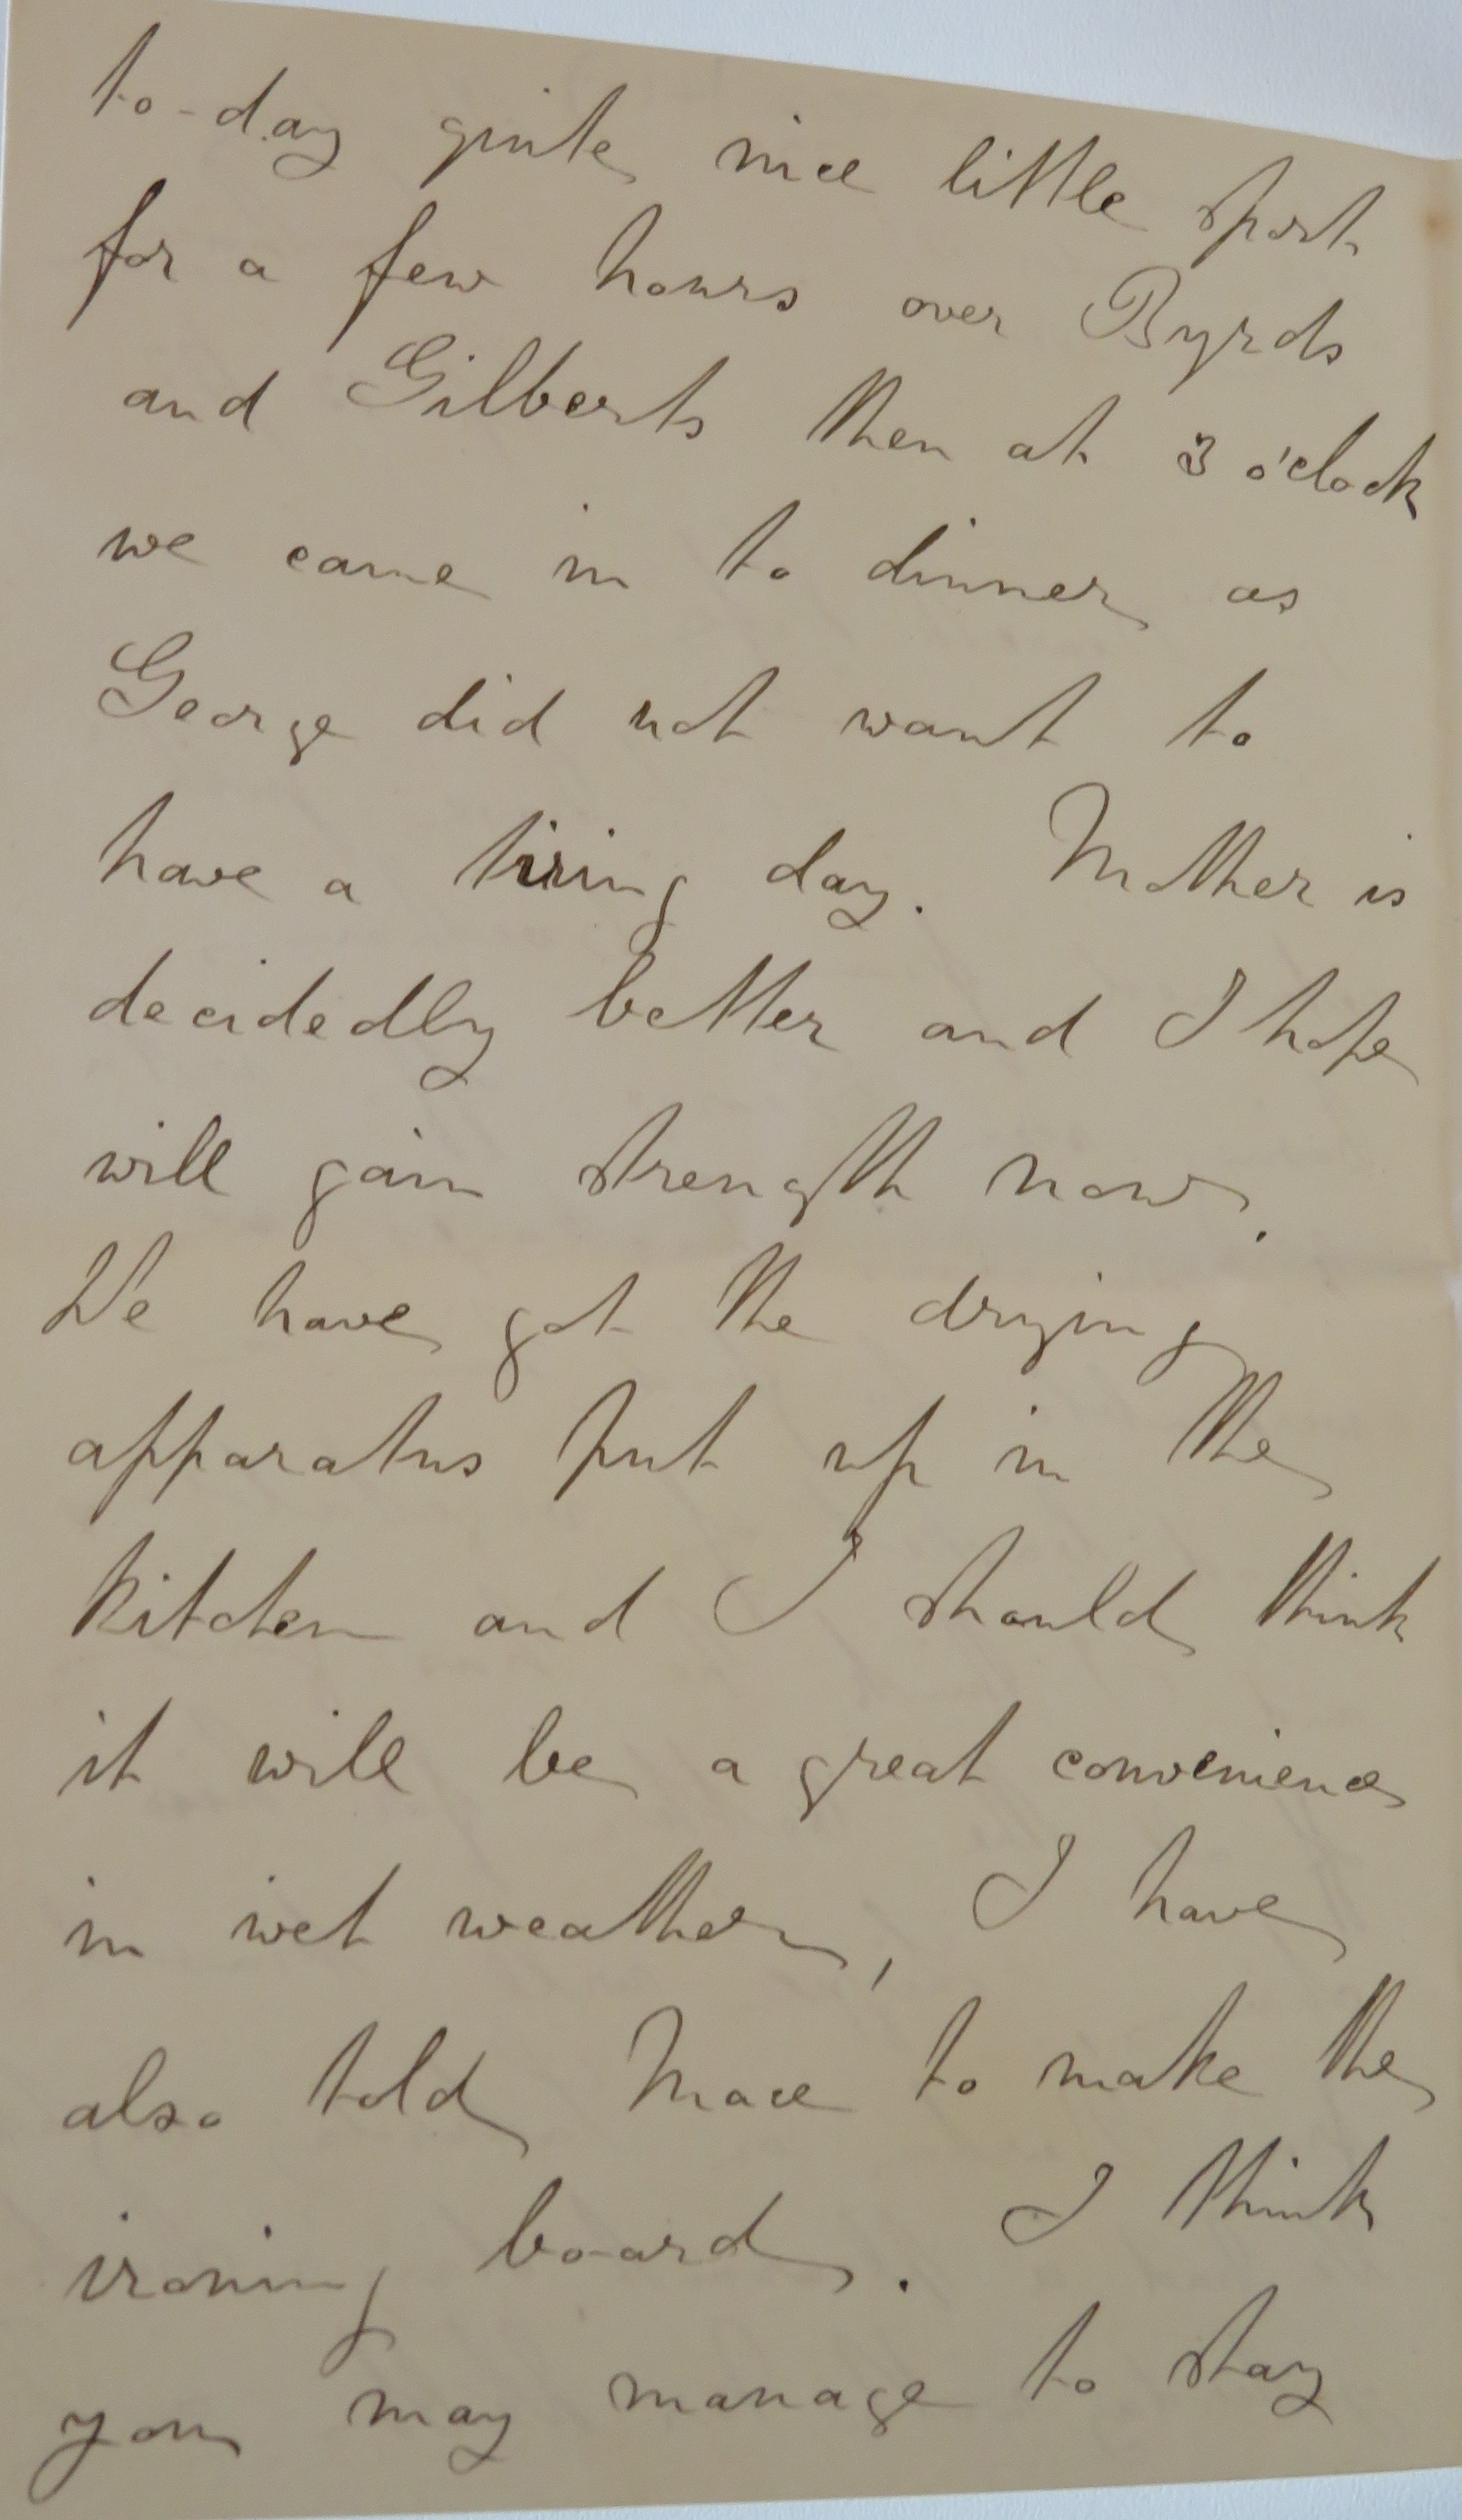 to-day quite nice little sport
for a few hours over Byrds
and Gilberts then at 3 o'clock
we came in to dinner as
George did not want to
have a tiring day. Mother is
decidedly better and I hope
will gain strength now.
We have got the drying
apparatus put up in the
kitchen and I should think
it will be a great convenience
in wet weather, I have
also told Mace to make the
ironing board. I think
you may manage to stay